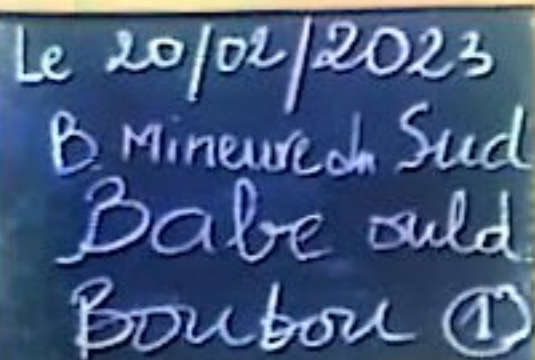 Le 20/02/2023
B. Mineure du Sud
Babe ould
Boubou ①